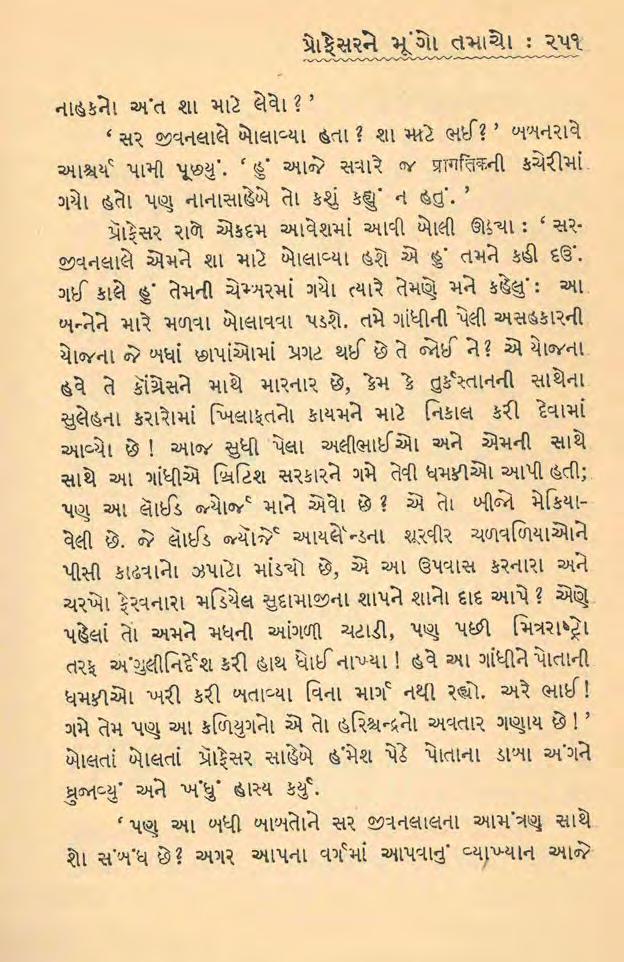 પ્રોફેસરને મૂંગો તમાચો : ૨૫૧
નાહકનો અંત શા માટે લેવો ? ’
‘ સર જીવનલાલે બોલાવ્યા હતા ? શા માટે ભઈ ? ’ બબનરાવે
આશ્ચર્ય પામી પૂછ્યું. ‘ હું આજે સવારે જ પ્રાगतिकની કચેરીમાં
ગયો હતો પણ નાનાસાહેબે તો કશું કહ્યું ન હતું. ’
પ્રૉફેસર રાળે એકદમ આવેશમાં આવી બોલી ઊઠ્યા : ‘ સર-
જીવનલાલે એમને શા માટે બોલાવ્યા હશે એ હું તમને કહી દઉં.
ગઈ કાલે હું તેમની ચેમ્બરમાં ગયો ત્યારે તેમણે મને કહેલું : આ
બન્નેને મારે મળવા બોલાવવા પડશે. તમે ગાંધીની પેલી અસહકારની
યોજના જે બધાં છાપાંઓમાં પ્રગટ થઈ છે તે જોઈ ને ? એ યોજના
હવે તે કૉંગ્રેસને માથે મારનાર છે, કેમ કે તુર્કસ્તાનની સાથેના
સુલેહના કરારોમાં ખિલાફતનો કાયમને માટે નિકાલ કરી દેવામાં
આવ્યો છે ! આજ સુધી પેલા અલીભાઈઓ અને એમની સાથે
સાથે આ ગાંધીએ બ્રિટિશ સરકારને ગમે તેવી ધમકીઓ આપી હતી;
પણ આ લૉઈડ જ્યોર્જ માને એવો છે ? એ તો બીજો મેકિયા-
વેલી છે. જે લૉઈડ જ્યૉર્જે આયર્લેન્ડના શૂરવીર ચળવળિયાઓને
પીસી કાઢવાનો ઝપાટો માંડ્યો છે, એ આ ઉપવાસ કરનારા અને
ચરખો ફેરવનારા મડિયેલ સુદામાજીના શાપને શાનો દાદ આપે ? એણે
પહેલાં તો અમને મધની આંગળી ચટાડી, પણ પછી મિત્રરાષ્ટ્રો
તરફ અંગુલીનિર્દેશ કરી હાથ ધોઈ નાખ્યા ! હવે આ ગાંધીને પોતાની
ધમકીઓ ખરી કરી બતાવ્યા વિના માર્ગ નથી રહ્યો. અરે ભાઈ !
ગમે તેમ પણ આ કળિયુગનો એ તો હરિશ્ચન્દ્રનો અવતાર ગણાય છે ! ’
બોલતાં બોલતાં પ્રૉફેસર સાહેબે હંમેશ પેઠે પોતાના ડાબા અંગને
ધ્રુજાવ્યું અને ખંધું હાસ્ય કર્યું.
‘ પણ આ બધી બાબતોને સર જીવનલાલના આમંત્રણ સાથે
શો સંબંધ છે ? અગર આપના વર્ગમાં આપવાનું વ્યાખ્યાન આજે